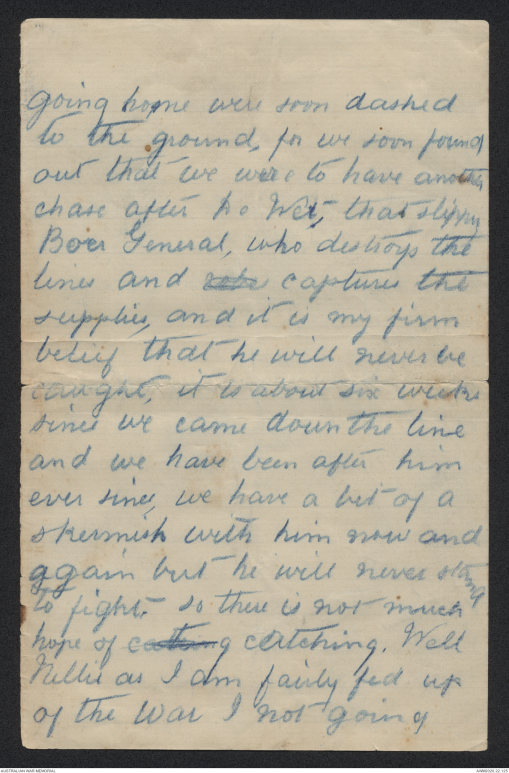 going home were soon dashed
to the ground, for we soon found
out that we were to have another
chase after De Wet, that slippry
Boer General, who destroys the
lines and captures the
supplies, and it is my firm
belief that he will never be
caught, it is about six weeks
since we came down the line
and we have been after him
ever since, we have a bit of a
skermish with him now and
again but he will never stand
to fight. so there is not much
hope of catching. Well
Nellie as I am fairly fed up
of the War I not going
AUSTRALIAN WAR MEMORIAL